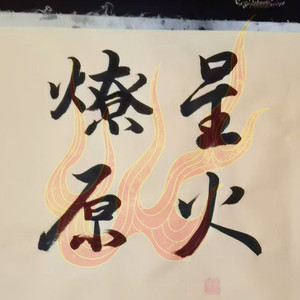 星火
燎原